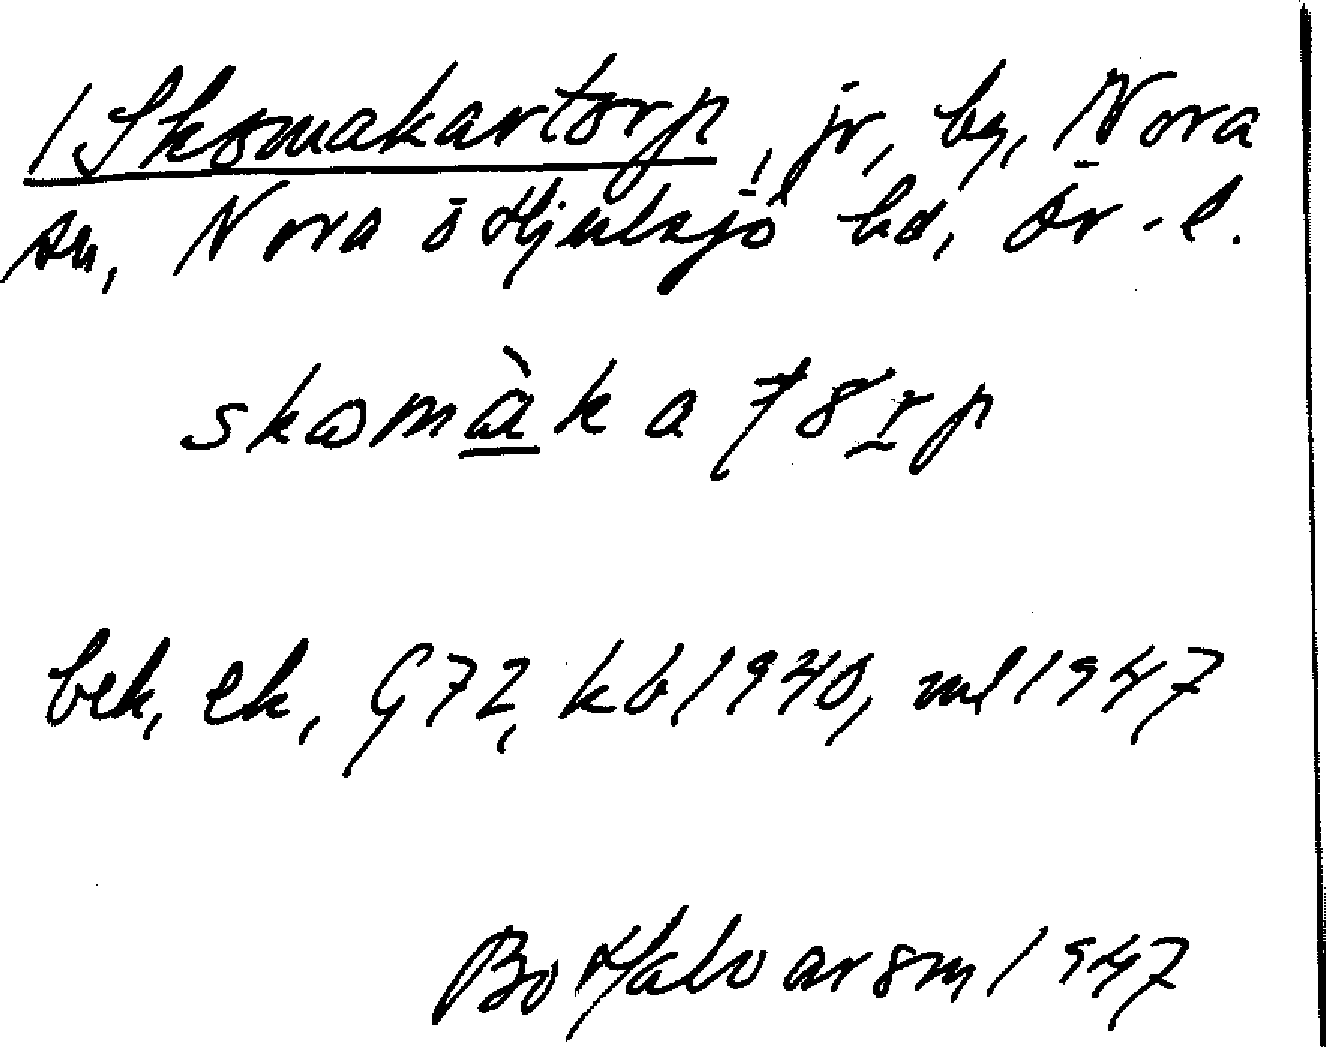 1 Skomakartorp, jr, by, Nora
sn, Nora o Hjulsjö hd, Ör-l.
bek, ek, G72, kb 1940, ml 1947
Bo Halvarson 1947